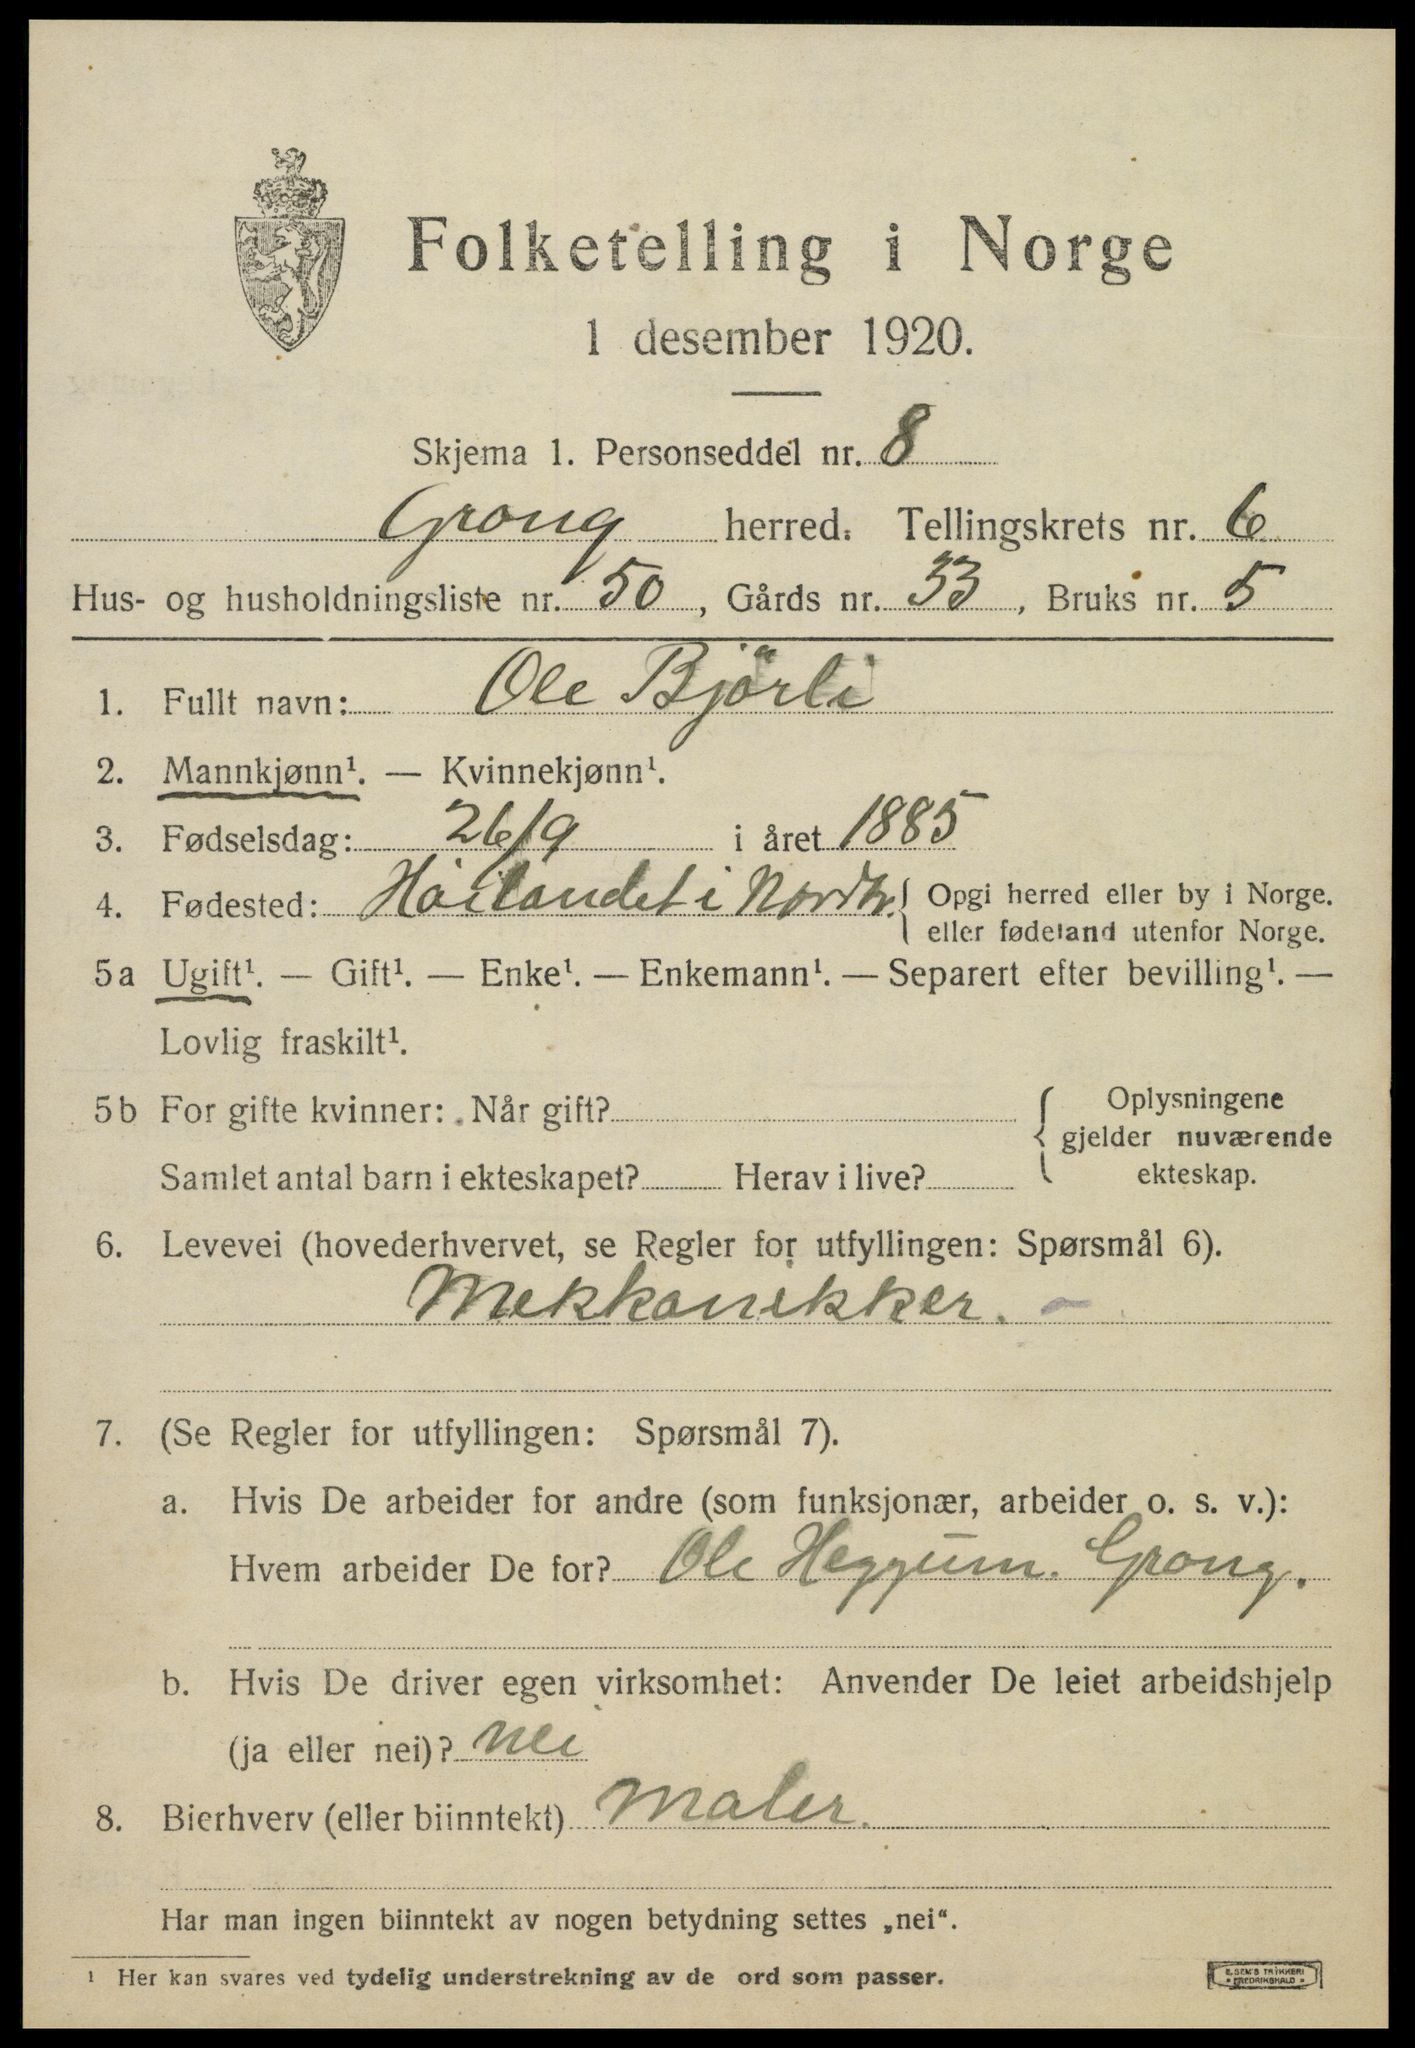 Folketelling i Norge
1 desember 1920.
Skjema 1. Personseddel nr. 8
Grong herred. Tellingskrets nr. 6
Hus- og husholdningsliste nr. 50, Gårds nr. 33, Bruks nr. 5
1. Fullt navn: Ole Bjørli
2. Mannkjønn¹. — Kvinnekjønn¹.
3. Fødselsdag: 26/9 i året 1885
4. Fødested: Höilandet i Nordtr. { Opgi herred eller by i Norge.
eller fødeland utenfor Norge.
5a Ugift¹. — Gift¹. — Enke¹. — Enkemann¹. — Separert efter bevilling¹. —
Lovlig fraskilt¹.
5b For gifte kvinner: Når gift?
Samlet antal barn i ekteskapet? Herav i live?
Oplysningene
gjelder nuværende
ekteskap.
6. Levevei (hovederhvervet, se Regler for utfyllingen: Spørsmål 6).
Mekkanikker.
7. (Se Regler for utfyllingen: Spørsmål 7).
a. Hvis De arbeider for andre (som funksjonær, arbeider o. s. v.):
Hvem arbeider De for? Ole Heggum. Grong.
b. Hvis De driver egen virksomhet: Anvender De leiet arbeidshjelp
(ja eller nei)? nei
8. Bierhverv (eller biinntekt) maler.
Har man ingen biinntekt av nogen betydning settes „nei“.
¹ Her kan svares ved tydelig understrekning av de ord som passer.
E. SEM'S TRYKKERI
FREDRIKSHALD